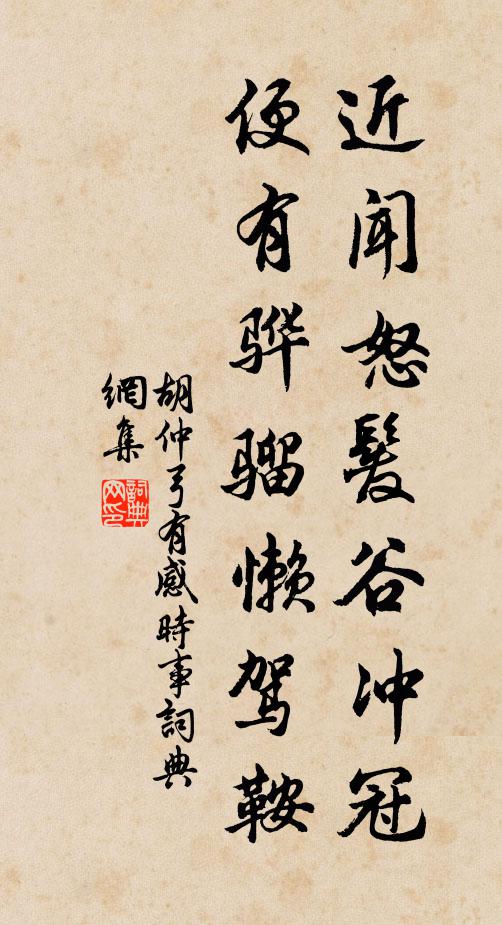 近闻怒髮谷冲冠
便有骅骝懒驾鞍
胡仲弓有感時事詞典
網集
詞典
网印